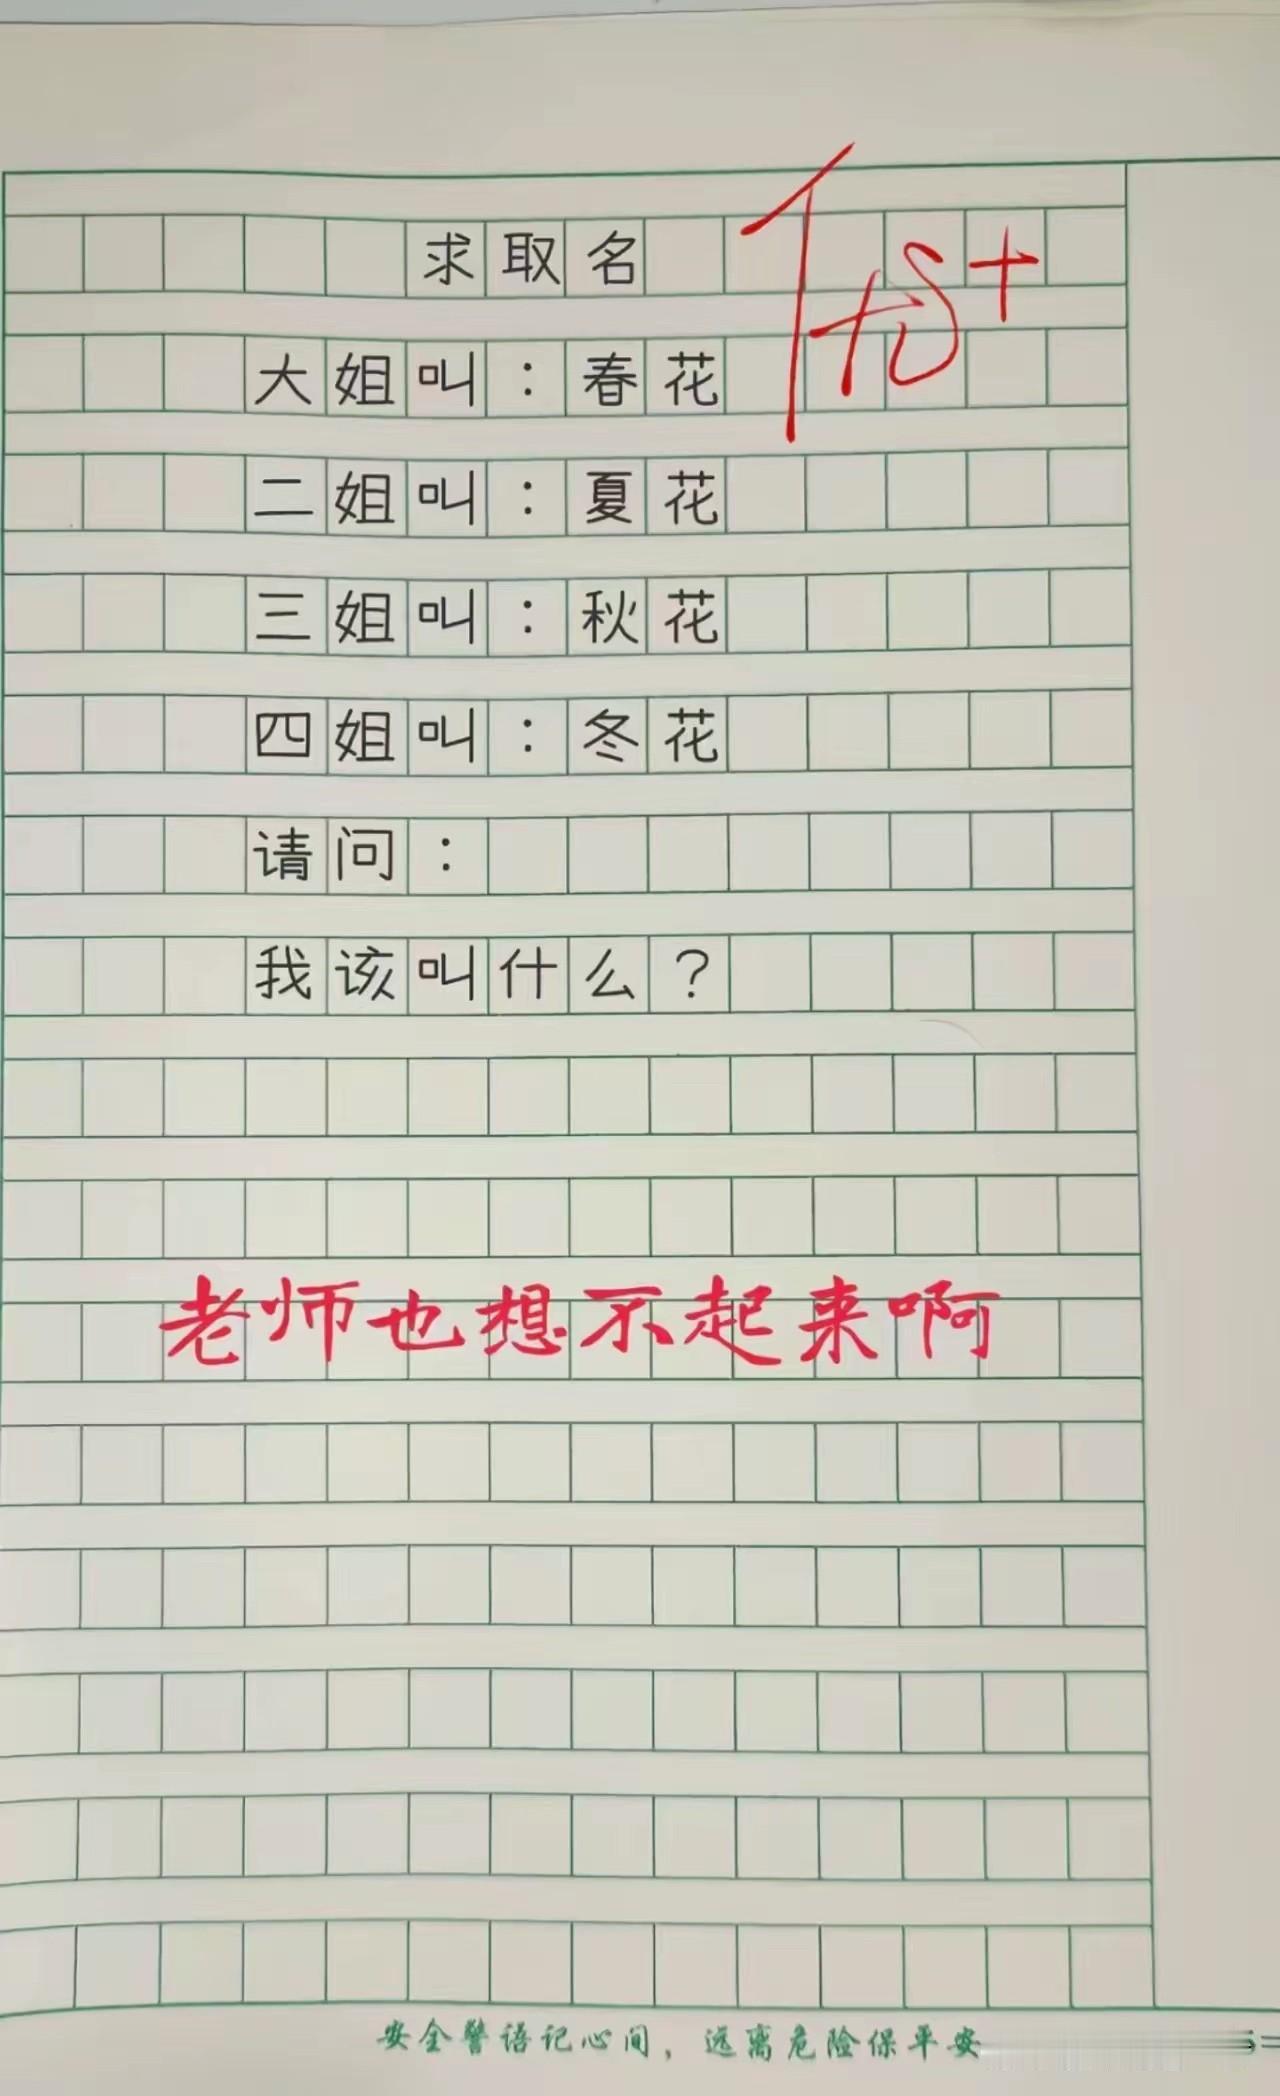 求取名
优+
大姐叫：春花
二姐叫：夏花
三姐叫：秋花
四姐叫：冬花
请问：
我该叫什么？
老师也想不起来啊
安全警语记心间，远离危险保平安